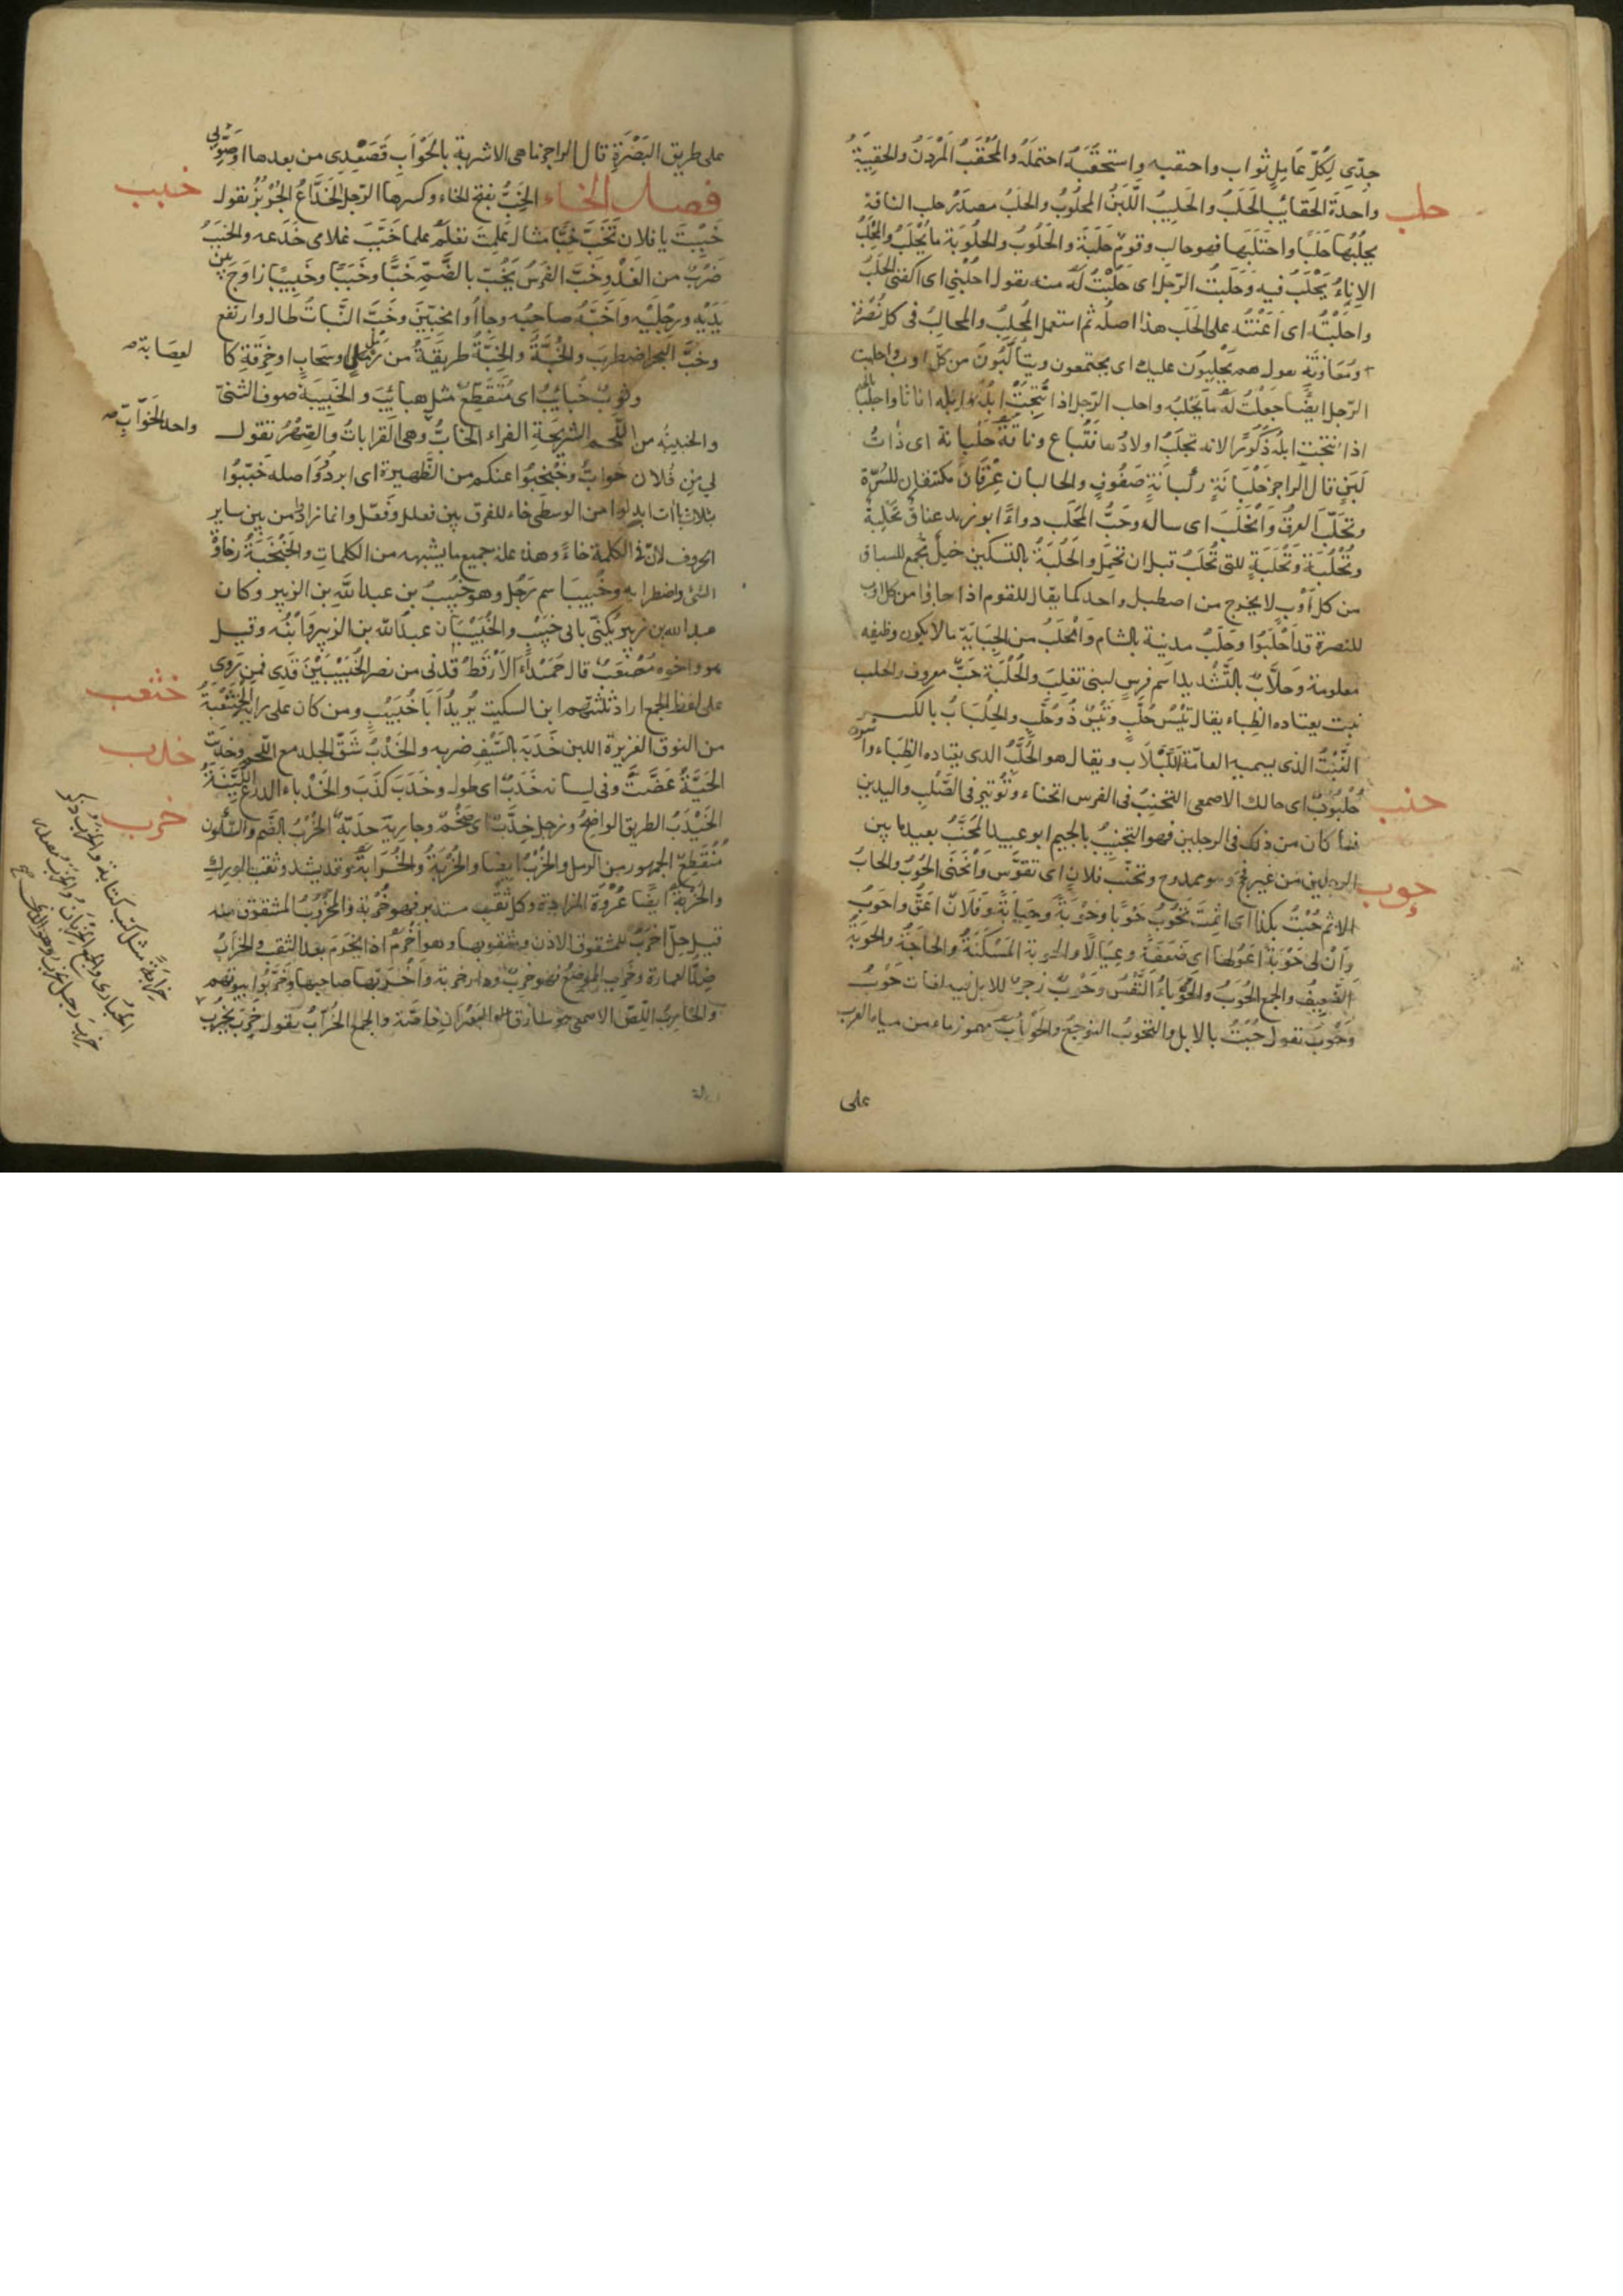 جدّي لِكُلّ عَامِلٍ ثواب واحتقبه واستحقَبَهُ احتمله والمُحْقَبُ المُرْدَفُ والحَقِيبَةُ
حلب
واحدة الحَقايُب الحَلَبُ والحَلِيبُ اللَّبَنُ المحلُوبُ والحَلبُ مصدَرُ حلب الناقة
يحلُبُهَا حَلَبًا واحتَلَبَها فهو حالب وقوم حَلَبَة والحَلُوبُ والحلُوبَة ما يُحْلَبُ والمِحْلَبُ
الإناءُ يُحْلَبُ فيه وحَلَبتُ الرّجل اى حَلَبْتُ لَهُ منه يقول احْلُبْنِي اى اكفنى الحَلَبَ
واحلَبْتُه اى اَعَنْتُه على الحَلَب هذا اصلُه ثم استعمل المُحلِبُ والمحالبُ فى كل نُصْرَة
ومُعَاوَنَةٍ يقول هم يَحْلِبُون عليك اى يجتمعون ويتأَلَّبُونَ من كلّ اوب واحلبت
الرّجل ايضًا جعلتُ لَهُ ما يَحْلِبُه واحلب الرّجل اذا نُتِجَتْ اِبلُهُ اناثا واجلَبَ بالجيم
اذا نتجت ابله ذُكُورًا لانه تجلَبُ اولادُها فَتُباع وناقة حَلْبَانَة اى ذاتُ
لَبَنٍ قال الراجز حَلْبَانَةٍ رَكْبَانَةٍ صَفُوفٍ والحالبان عِرْقَانِ مكتنفان للسُرّة
وتَحَلَّبَ العرقُ وَانْحَلَبَ اى سال وحَبُّ المَحْلَب دواءٌ ابو زيد عناقٌ تُحْلِبَةٌ
وتُحْلُبَة وتُحْلَبَةٍ للتى تُحلَبُ قبل ان تحمل والحَلْبَةُ بالتسكين خيلٌ تُجمَع للسباق
من كل أوْبٍ لا يخرج من اصطبل واحد كما يقال للقوم اذا جاؤا من كل اوب
للنصرة قد اَحْلَبُوا وحَلَبُ مدينة بالشام وَالحَلَبُ من الجِبَايَة ما لا يكون وظيفه
معلومة وحلَّابٌ بالتَّشديد اسم فرس لبنى تغلب والحُلْبَة حَبٌّ معروف والحلب
نبت يعتاده الظباء يقال تَيْسُ حُلَّبٍ وَتَيْسٌ ذُو حُلَّبٍ والحِلْبَابُ بالكسر
النَّبْتُ الذى يسميه العامّة اللَّبْلَاب ويقال هو الحُلَّبُ الذى يعتاده الظباء واسود
حنب
حُلْبُوبٌ اى حالك الاصمعى التحنِيبُ فى الفرس انحناء وتوتير فى الصُّلْب واليدين
فاذا كان من ذلك فى الرجلين فهو التجنيبُ بالجيم ابو عبيد المحَنَّبُ بعيد ما بين
حوب
الرجلين من غير فحج وهو ممدوح وتحنّب فلانٍ اى تقوَّس وَانْحَنَى الحُوبُ والحابُ
الاثم حُبْتُ بكذا اى اثِمتَ تَحُوبُ حَوْبًا وحَوْبَةً وحِيَابَةً وفلانٌ اعَقُّ واحوَبُ
وَانَّ لى حَوْبَة اَعُولُها اى ضَعَفَةً وعِيَالًا والحوبة المَسكَنَةُ والحاجَةُ والحوبَةُ
الضَّعِيفُ والجمع الحُوَبُ والحَوْبَاءُ النَّفْس وحَوْبُ زجرٌ للابل فيه لغات حَوْبُ
وَحَوْبِ تقول حَبْتُ بالابل والتحوبُ التوجعُ والحَوْأَبُ مهموز ماء من مياه العرب
على
على طريق البَصْرَة قال الراجز ما هى الا شربة بالحَوْأَبِ فَصَعِّدِي من بعدها او صَوِّبى
خبب
فصل الخاء الخَبُّ بفتح الخاء وكسرها الرّجل الخدَّاعُ الجُرْبُزُ تقول
خَبِبْتَ يا فلان تَخَبُّ خِبًّا مثال عَلِمتَ تعلَمُ علما خَبَّبَ غلامى خَدَعه والخبَبُ
ضَرْبٌ من العَدْوِ خَبَّ الفرسُ يَخُبّ بالضَّمّ خَبًّا وخَبَبًا وخَبِيبًا زاوَحَ بين
يَدَيْهِ ورِجْلَيْهِ وَاَخَبَّهُ صاحبُه وجاؤا مُخِبّينَ وخَبَّ النَّباتُ طال وارتفع
وخَبَّ البحرُ اضطرب والخُبَّةُ والخِبَّةُ طريقَةٌ من رملٍ او سحابٍ او خِرقَةٍ كا
لعِصَابة صح
وثوبٌ خَبائِبُ اى مُتَقطِّع مثل هبائِبَ والخَبِيبَة صوف الثنىّ
والخبيبةُ من اللّحم الشريحة الفراء الخابُّ وهى القراباتُ والصِهْرُ تقول
واحد الخَوَابِّ صح
لي مِن فُلان خوابُّ وخَبْخِبُوا عنكم من الظَّهِيرة اى ابردُوا اصله خَبّبُوا
بثلاث باآت ابدلوا من الوسطى خاء للفرق بين فعلل وفعّل وانما زادوا من بين ساير
الحروف لانّ فى الكلمة خاءً وهذه علة جميع ما يشبهه من الكلماتِ والخَبْخَبَةُ رخاوَةُ
الشئ واضطرابه وخُبَيب اسم رَجُل وهو خُبَيْبُ بن عبدالله بن الزبير وكان
عبدالله بن زبير يُكَنّى بابى خُبَيْبٍ والخُبَيْبَان عبدالله بن الزبير وابنُه وقيل
هو واخوه مُصْعَبٌ قال حُمَيدٌ الاَرْقَطُ قدنى من نصر الخُبَيْبَيْنِ قَدِى فمن رَوى
خثعب
على لفظ الجمع اراد ثلثتهم ابن السكيت يُرِيدُ اَبَا خُبَيْبٍ ومن كان على رايه الخُثْعبَةُ
خدب
من النوق الغزيرة اللبن خَدَبَه بالسَّيْفِ ضربه والخَدْبُ شَقّ الجلد مع اللّحم وخدبَت
الحَيَّةُ عَضَّتْ وفى لسانه خَدَبٌ اى طول وخَدَبَ كَذَبَ والخَدْبَاء الدرع اللَّيِّنَةُ
خرب
الخَيْدَبُ الطريق الواضِحُ ورجل خِدَبٌّ اى ضَخْمٌ وجارية خِدَبَّة الخُرْبُ بالضَّم والسّكون
مُنْقَطِعُ الجمهور من الرمل والخُرْبُ ايضا والخُرْبَةُ والخُرَابَةُ وقد يشدد ثقب الورك
والخُرْبَةُ ايضًا عُرْوَةُ المزادة وكل ثُقْبٍ مستدير فهو خُرْبة والمخرُوبُ المشقوق منه
قيل رجل اَخْرَبُ للمشقوق الاذن ومثقوبها وهو اَخْرَمُ اذا انخَرمَ بعد الثقب والخَرَابُ
ضِدّ العمارة وخَرِبَ الموضعُ فهو خَرِبٌ ودار خربة واَخْرَبَها صاحبها وخَرَّبُوا بيوتهم
والخارِبُ اللِّصّ الاصمعى هو سارق البُعْرَانِ خاصّة والجمع الخُرَّابُ يقول خَرَبَ يَخْرُبُ
خِرابَةً مثل كتب كتابة والخَرَبُ ذكر
الحُبَارَى والجمع الخِرْبَان والخَرَبُ مصدر